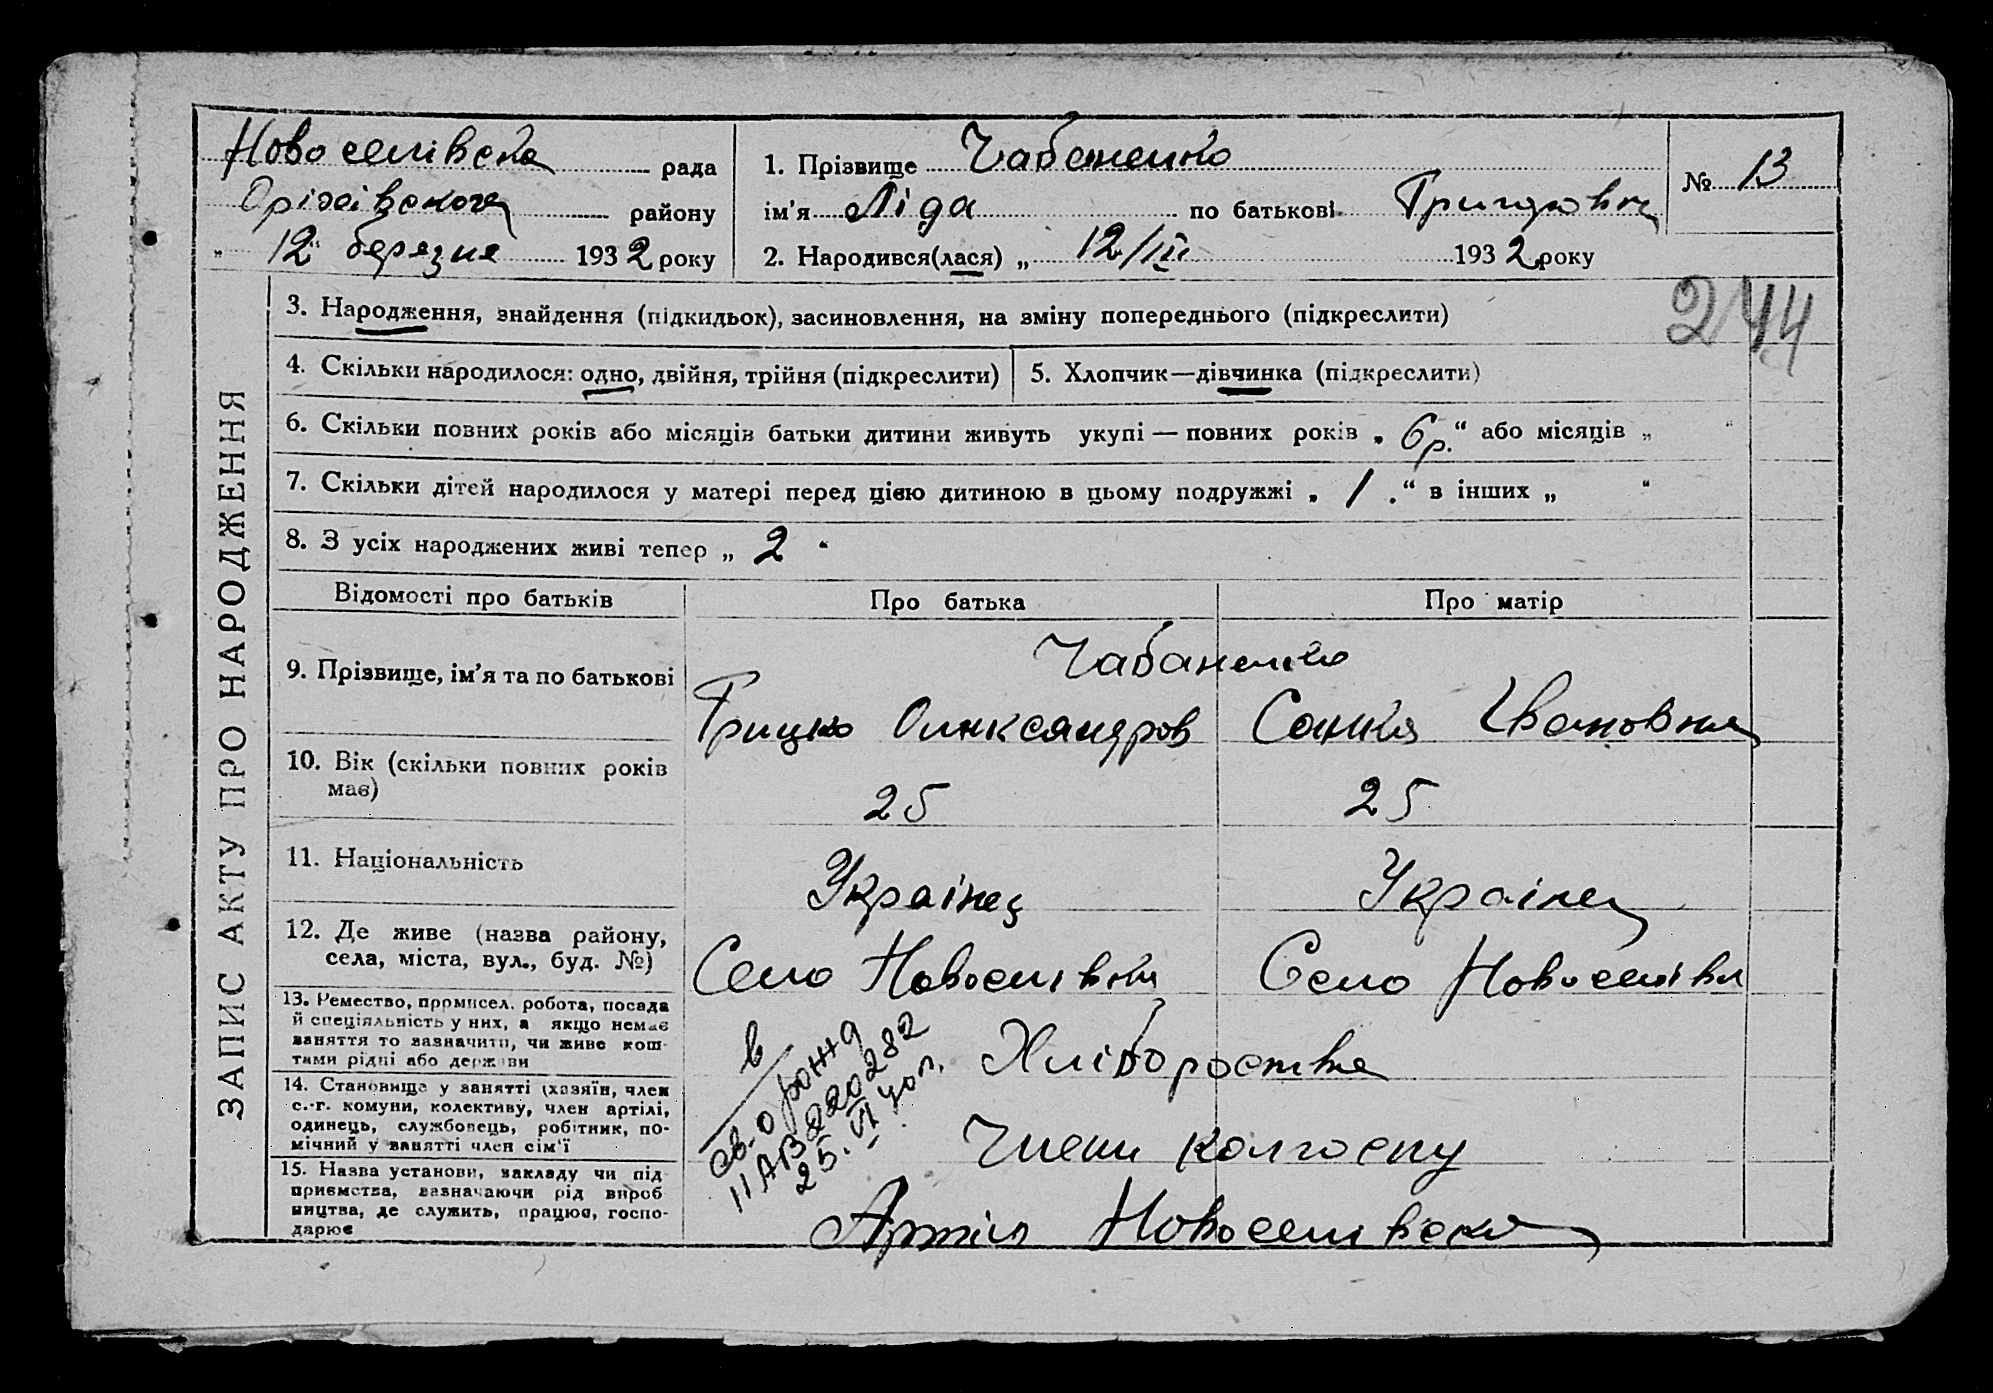 ЗАПИС АКТУ ПРО НАРОДЖЕННЯ
Новоселівска рада
Оріхівського району
„ 12 " березня 1932 року
1. Прізвище Чабаненко
ім'я Ліда по батькові
2. Народився(лася) „ 12/III 1932 року
№ 13
244
3. Народження, знайдення (підкидьок), засиновлення, на зміну попереднього (підкреслити)
4. Скільки народилося: одно, двійня, трійня (підкреслити)
5. Хлопчик—дівчинка (підкреслити)
6. Скільки повних років або місяців батьки дитини живуть укупі — повних років „ 6 р. “ або місяців „ “
7. Скільки дітей народилося у матері перед цією дитиною в цьому подружжі „ 1 . “ в інших „ “
8. З усіх народжених живі тепер „ 2 “
Відомості про батьків
Про батька
Про матір
9. Прізвище, ім'я та по батькові
Чабаненко
Грицко Олександров
Санка Ивановна
10. Вік (скільки повних років
має)
25
25
11. Національність
Українец
Українец
12. Де живе (назва району,
села, міста, вул., буд. №)
Село Новоселівка
Село Новоселівка
13. Ремество, промисел, робота, посада
й спеціяльність у них, а якщо немає
заняття то зазначити, чи живе кош-
тами рідні або держави
Хліборотва
14. Становище у занятті (хазяїн, член
с.-г. комуни, колективу, член артілі,
одинець, службовець, робітник, по-
мічний у занятті член сім'ї
Члени колгоспу
15. Назва установи, закладу чи під-
приємства, зазначаючи рід вироб
ництва, де служить, працює, госпо-
дарює
Артіль Новоселівска
в
св-о рожд
II АВ 220282
25. VI